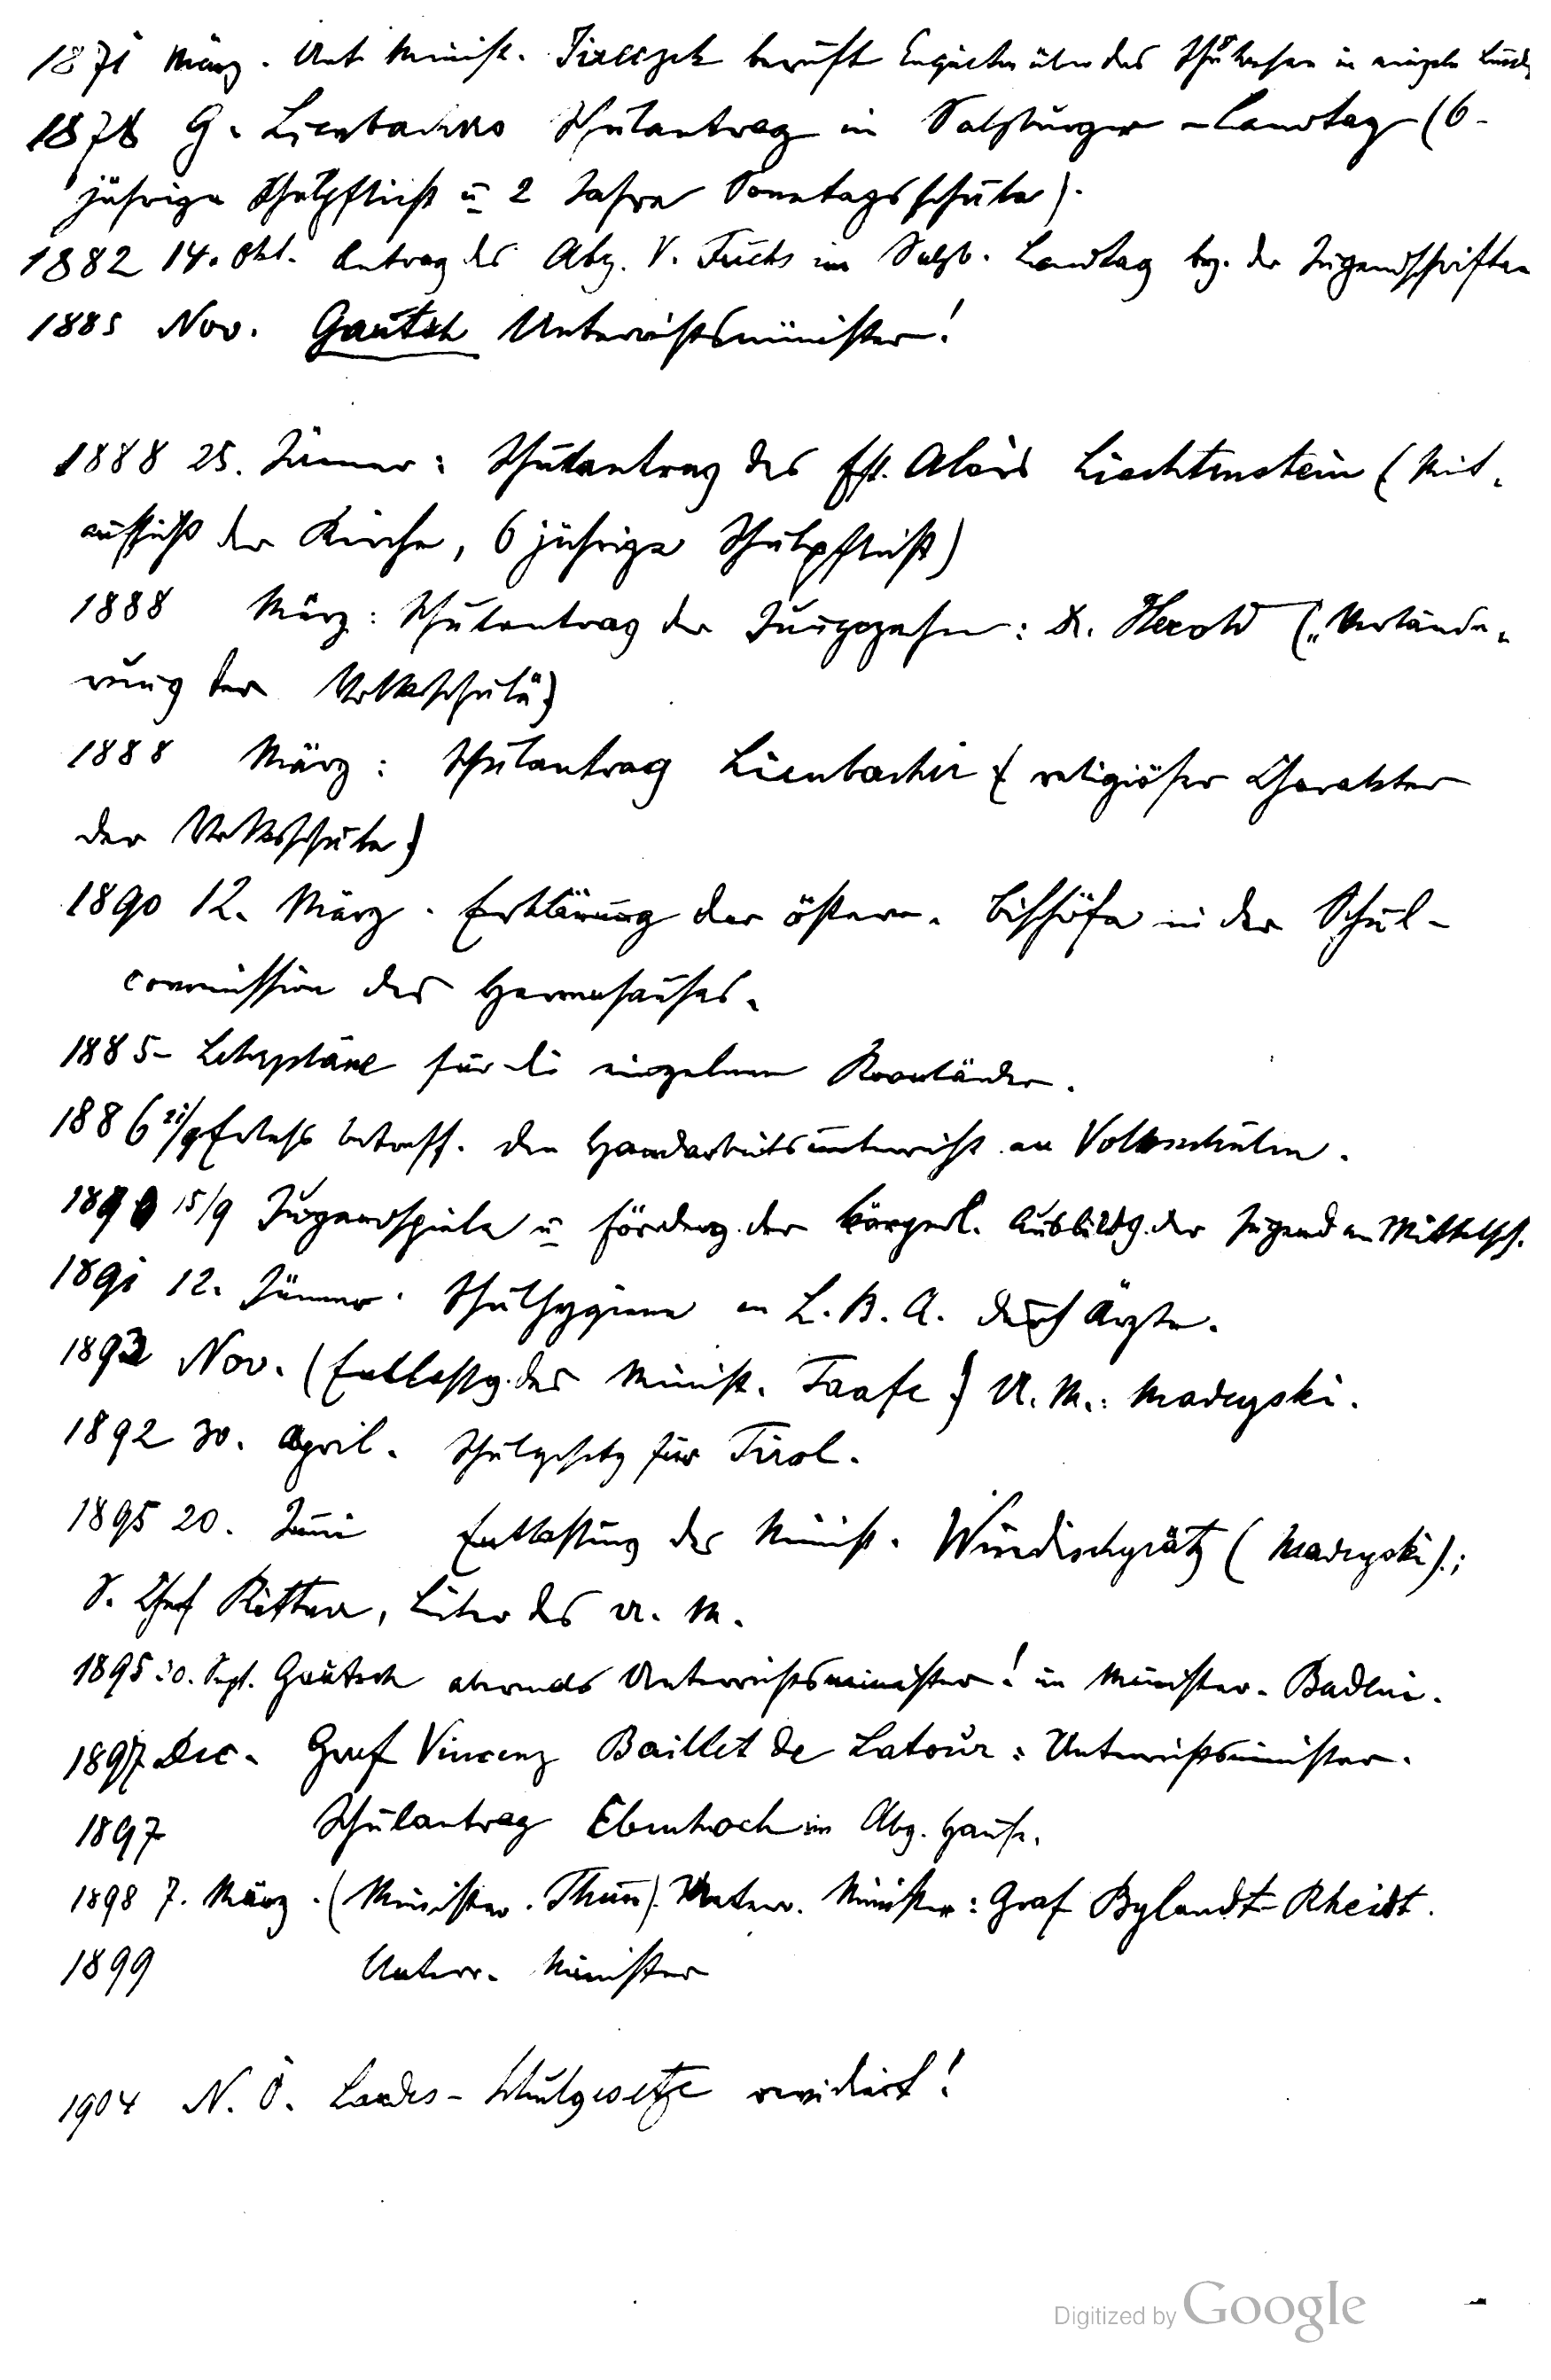 1871 März. Unt. Minist. Jireczek beruft Enquêten über das Schulwesen in einzeln
1878 G. Lienbachers Schulantrag in Salzburger-Landtag (6-
jährige Schulpflicht u 2 Jahre Sonntagsschule).
1882 14. Okt. Antrag des Abg. V. Fuchs im Salzb. Landtag bez. der Jugendschriften
1885 Nov. Gautsch Unterrichtsminister!
1888 25. Jänner: Schulantrag des Fst. Alois Liechtenstein (Mit-
aufsicht der Kirche, 6 jährige Schulpflicht)
1888 März: Schulantrag der Jungczechen: Dr. Herold („Verlände-
rung der Volksschule“)
1888 März: Schulantrag Lienbacher (religiöser Charakter
der Volksschule)
1890 12. März. Erklärung der österr. Bischöfe in der Schul-
commission des Herrenhauses.
1885- Lehrpläne für die einzelnen Kronländer.
1886 21/9 Erlass betreff. den Handarbeitsunterricht an Volksschulen.
1890 15/9 Jugendspiele u Förderg. der körperl. Ausbildg. der Jugend an Mittelsch.
1891 12. Jänner. Schulhygiene an L. B. A. durch Ärzte.
1893 Nov. (Entlassg. des Minist. Taafe) U. M.: Madeyski.
1892 30. April. Schulgesetz für Tirol.
1895 20. Juni Entlassung des Minist. Windischgrätz (Madeyski).;
S. Chef Rittner, Leiter des U. M.
1895 30. Sept. Gautsch abermals Unterrichtsminister! im Minister. Badeni.
1897 Dec. Graf Vincenz Baillet de Latour: Unterrichtsminister.
1897 Schulantrag Ebenhoch im Abg. Hause.
1898 7. März. (Minister. Thun). Unterr. Minister: Graf Bylandt-Rheidt.
1899 Unterr. Minister
1904 N. Ö. Landes-Schulgesetze revidiert!
Digitized by Google